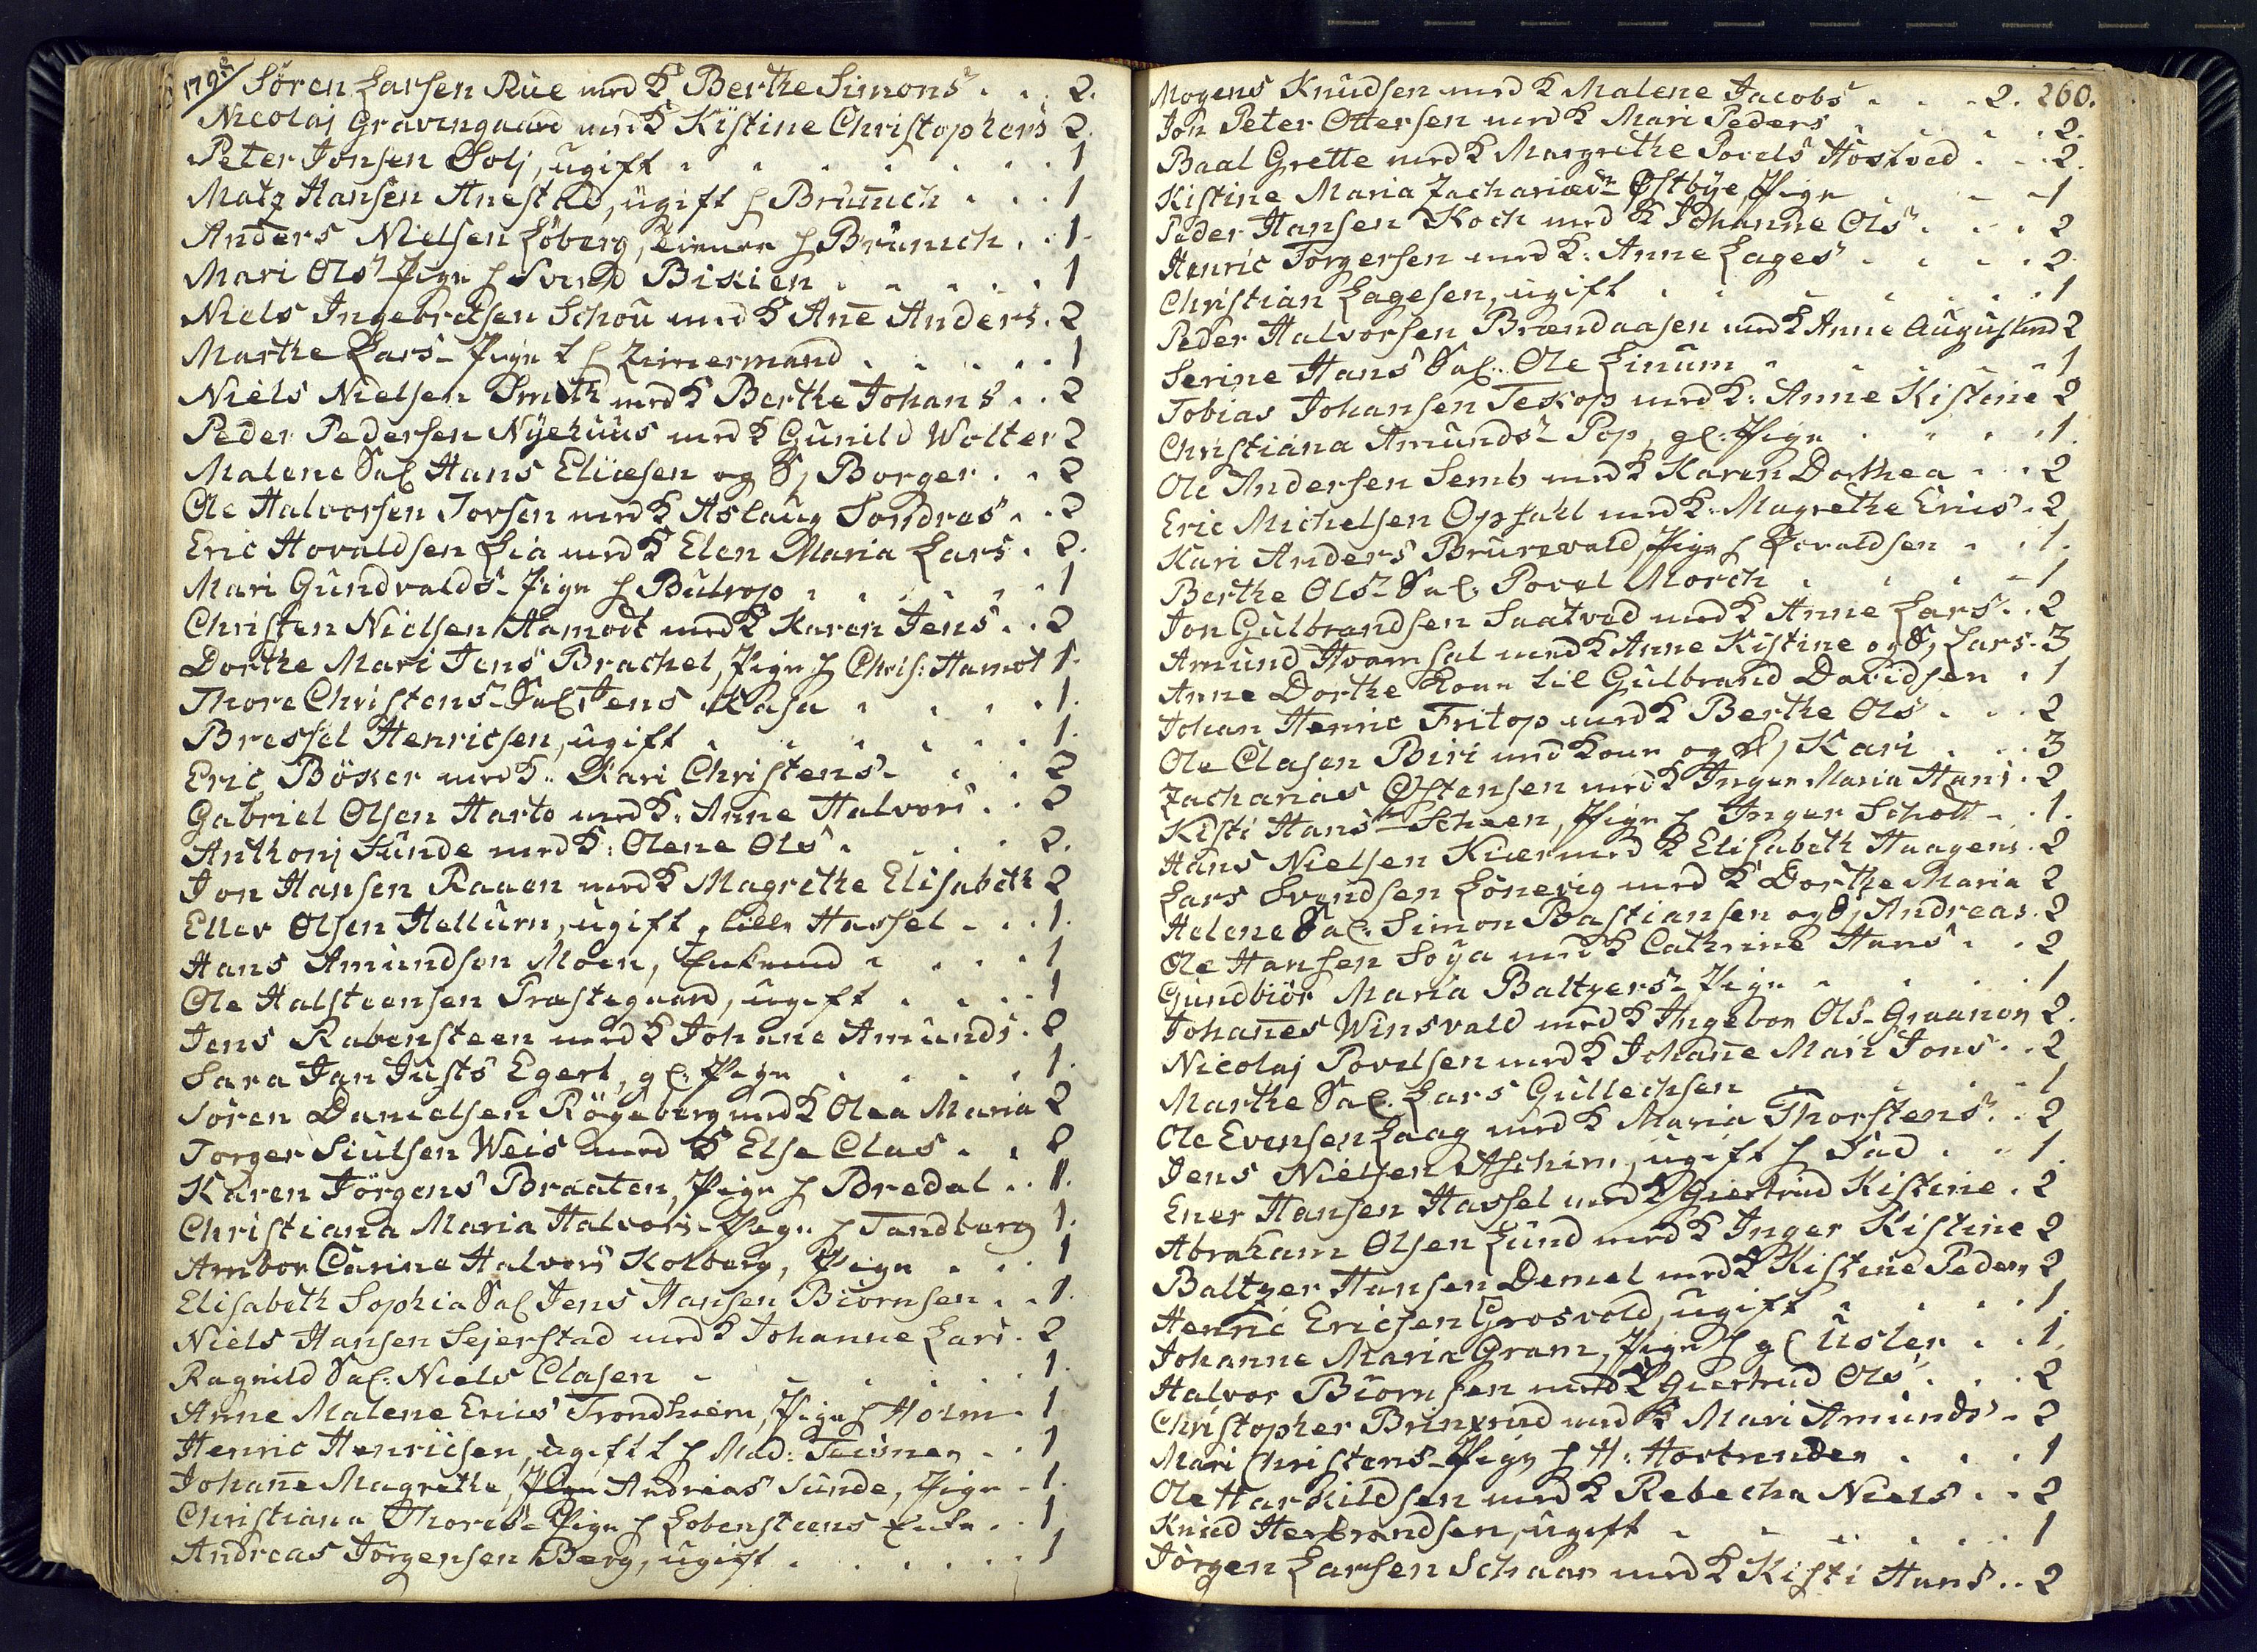 Sören Larsen Rüe med K Berthe Simons . . 2.
Nicolaj Gravengaard med K Kistine Christophers 2.
Peter Jonsen Solj, ugift . . . . . . 1
Matz Hansen Anestad, ugift h Brünich . . . 1
Anders Nielsen Löberg, tiener h Brünich . . 1
Mari Ols Pige h Svend Bikien . . . . . 1
Niels Ingebretsen Schou med K Ane Anders . 2
Marthe Lars Pige h Zimermand . . . . . 1
Niels Nielsen Smith med K Berthe Johans . . 2
Peder Pedersen Nÿehuus med K Gunild Wolter 2
Malene Sal Hans Eliæsen og S, Borger . . 2
Ole Halvorsen Torsen med K Aslaug Sondres . . 2
Eric Hovaldsen Lia med K Elen Maria Lars . 2.
Mari Gundvalds Pige h Butrop . . . . . 1
Christen Nielsen Aamodt med K Karen Jens . . 2
Dorthe Mari Jens Brachel, Pige h Chrls: Hamot 1.
Thore Christens Sal Jens Kasa . . . . 1.
Bressel Henricsen, ugift . . . . . . 1.
Eric Böker med K. Kari Christens . . . 2
Gabriel Olsen Harto med K. Anne Halvors . . 2
Anthonj Sunde med K: Olene Ols . . . . 2.
Jon Hansen Raaen med K Magrethe Elisabeth 2
Eller Olsen Hellum, ugift, lille Hassel . . . 1.
Hans Amundsen Moen, Enkemd . . . . 1
Ole Halsteensen Præstegaard, ugift . . . . 1
Jens Rabensteen med K Johane Amunds . 2
Sara Jan Justs Egert, gl: Pige . . . . 1.
Sören Danielsen Rögeberg med K Olea Maria 2
Torger Siulsen Weis med K Else Clas . . 2
Karen Jörgens Braaten, Pige h Bredal . . 1.
Christiana Maria Halvors Pige h Tandberg 1.
Ambor Carine Halvors Kolberg, Pige . . . 1
Elisabeth Sophia Sal Jens Hansen Biörnsen . . 1.
Niels Hansen Sejerstad med K Johanne Lars . 2
Ragnild Sal: Niels Clasen . . . . . 1.
Anne Malene Erics Trondhiem, Pige h Holm . 1
Henric Henricsen, ugift h Mad: . . 1
Johane Magrethe, Andreas Sunde, Pige . 1.
Christiana Thores Pige h Lobensteens Enke . . 1
Andreas Jörgensen Berg, ugift . . . . . . 1
Mogens Knudsen med K Malene Jacobs . . . 2. 260.
Jon Peter Ottersen med K Mari Peders . . . . 2.
Baal Grette med K Margrethe Povels Hostved . . . 2.
Kistine Maria Zachariæ Östbÿe, Pige . . . 1
Peder Hansen Koch med K Johanne Ols . . . 2
Henric Torgersen med K: Anne Lages . . . . 2.
Christian Lagesen, ugift . . . . . . . 1
Peder Halvorsen Brændaasen med K Anne Augustind 2
Serine Hans Sal. Ole Linum . . . . . . 1
Tobias Johansen Teskop med K: Anne Kistine 2
Christiana Amunds Pop, gl: Pige . . . . 1.
Ole Andersen Semb med K Karen Dorthea . . . 2
Eric Michelsen Opsahl med K. Magrethe Erics . 2
Kari Anders Brurevald, Pige h . . 1.
Berthe Ols Sal: Povel Morch . . . . . 1
Jon Gulbrandsen Saatved med K Anne Lars . . 2
Amund Hvamsal med K Anne Kistine og S, Lars . 3
Anne Dorthe Kone til Gulbrand Davidsen . 1
Johan Henric Fritop med K Berthe Ols . . . 2
Ole Clasen Biri med Kone og d, Kari . . . 3
Zacharias Östensen med K Inger Maria Hans . 2
Kisti Hans Scheen, Pige h Inger Schött . . 1.
Hans Nielsen Kiær med K Elisabeth Haagens . 2
Lars Svendsen Lönevig med K Dorthe Maria 2
Helene Sal: Simon Bastiansen og S, Andreas . 2
Ole Hansen Soÿa med K Cathrine Hans . . 2
Gundbiör Maria Baltzers Pige . . . . 1
Johanes Winsvald med K Ingebor Ols Graanon 2.
Nicolaj Povelsen med K Johane Mari Jons . . 2
Marthe Sal: Lars Gullechsen . . . . . 1
Ole Evensen Laag med K Maria Thorstens . . 2
Jens Nielsen Aschim, ugift h Fad . . . 1.
Ener Hansen Hassel med K Giertrud Kistine . 2
Abraham Olsen Lund med K Inger Kistine 2
Baltzer Hansen Demel med K Kistine Peders 2
Henric Ericsen Grosvold, ugift . . . . . 1.
Johanne Maria Gram, Pige h gl Usler . . 1.
Halvor Biörnsen med K Giertrud Ols . . . 2
Christopher Brinxrud med K Mari Amunds . 2
Mari Christens Pige h H: Hortrunden . . . 1
Ole Harkildsen med K Rebecha Niels . . 2
Knud Herbrandsen, ugift . . . . . . 1
Jörgen Larsen Schaar med K Kisti Hans . . 2